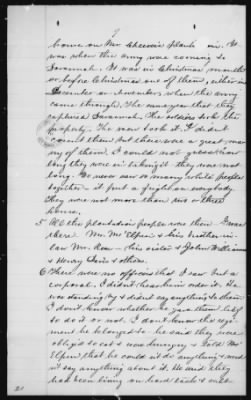 2
home on Mr Cheevis plants in. It
was when the army was coming to
Savannah. It was in Christmas month
or before Christmas one of them, either in
December or November, when the army
came through. The same year that they
captured Savannah. The soldiers took the
property. The men took it. I didn't
count them but there were a great many
of them. I could not
long they were in taking it they was not
long. I never saw so many white people
together - it put a fright on everybody
They were not more than two or three
hours.
5 All the plantation people was there
there. Mr. McElpin & his brother in
law Mr. New - his sister & John Williams
& Henry Davis & others.
6 There were no officers that I saw but a
corporal. I didn't hear him order it. He
was standing by & didn't say anything to them
I don't know whether he gave them
to do it or not. I don't know the regi
ment he belonged to - he said they were
oblig'd to eat & was hungry & told Mr
Elpin that he could not do anything - and
not say anything about it. He said they
had been living on hard tack & was